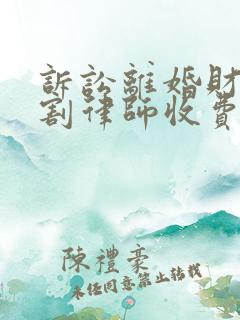 訴訟離婚財
割律師收費
陳禮豪
未任同意禁止轉載